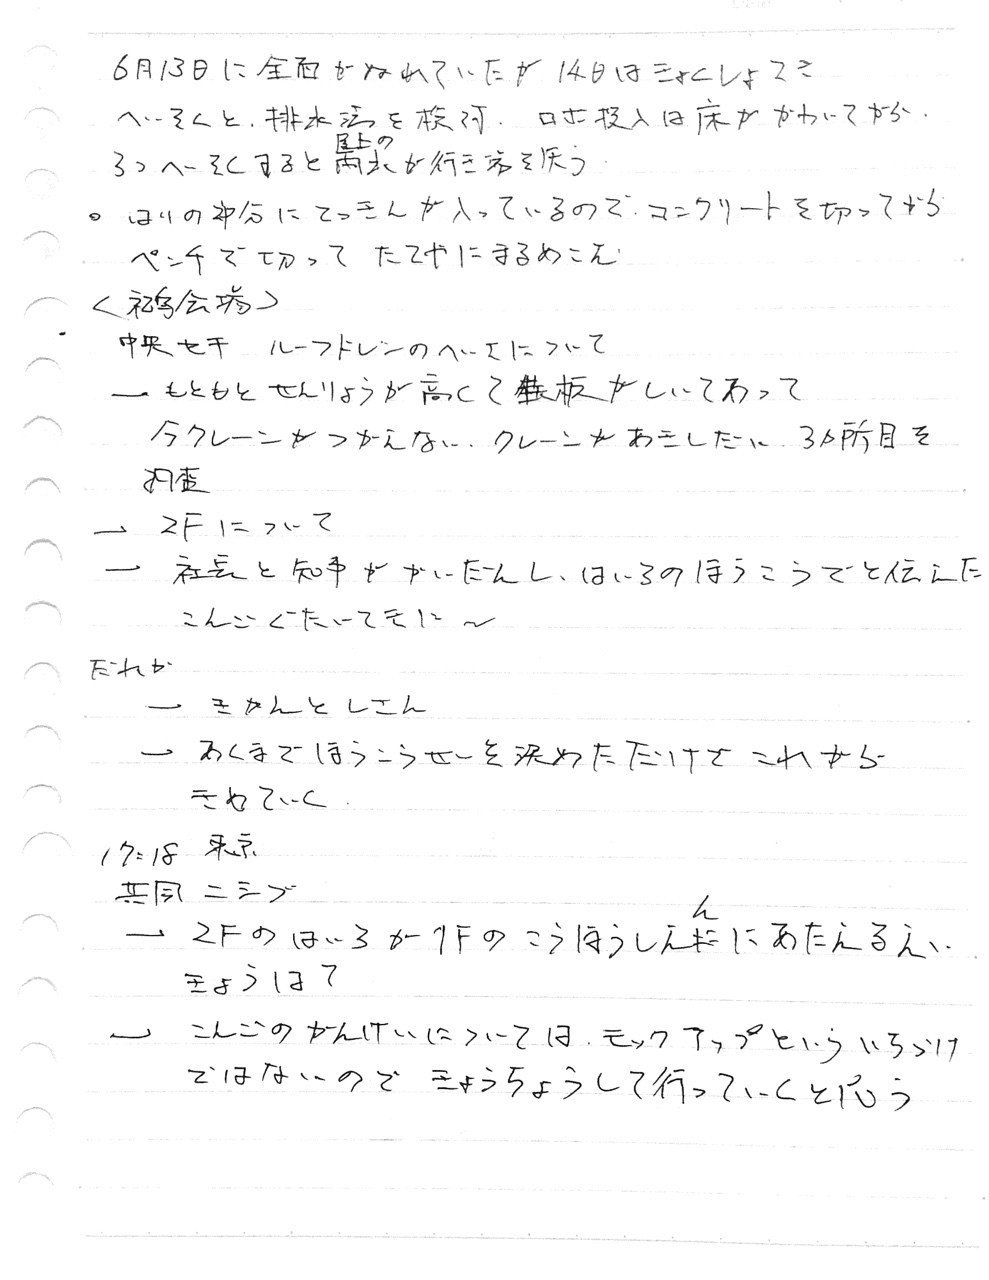 6月13日に全面がぬれていたが 14日はきょくしょてき
へいそくと、排水法を検討. ロボ投入は床がかわいてから.
3つへいそくすると屋上の雨水が行き場を失う.
○ はりの部分にてっきんが入っているので. コンクリートを切ってから
ペンチで切って たて
<福島会場>
中央 セキ ルーフドレンのへいそくについて
→ もともと せんりょうが高くて 鉄板がしいてあって
今クレーンがつかえない. クレーンがあきしだい 3か所目を
調査
→ 2Fについて
→ 社長と知事がかいだんし、はいろのほうこうでと伝えた
こんごぐたいてきに〜
だれか
→ きかんとしさん
→ あくまでほうこうせいを決めただけで これから
きめていく
17:18 東京
共同 ニシブ
→ 2Fのはいろが1Fのこうほうしえんにあたえるえい
きょうは?
→ こんごのかんけいについては. モックアップという いちづけ
ではないので きょうちょうして行っていくと思う